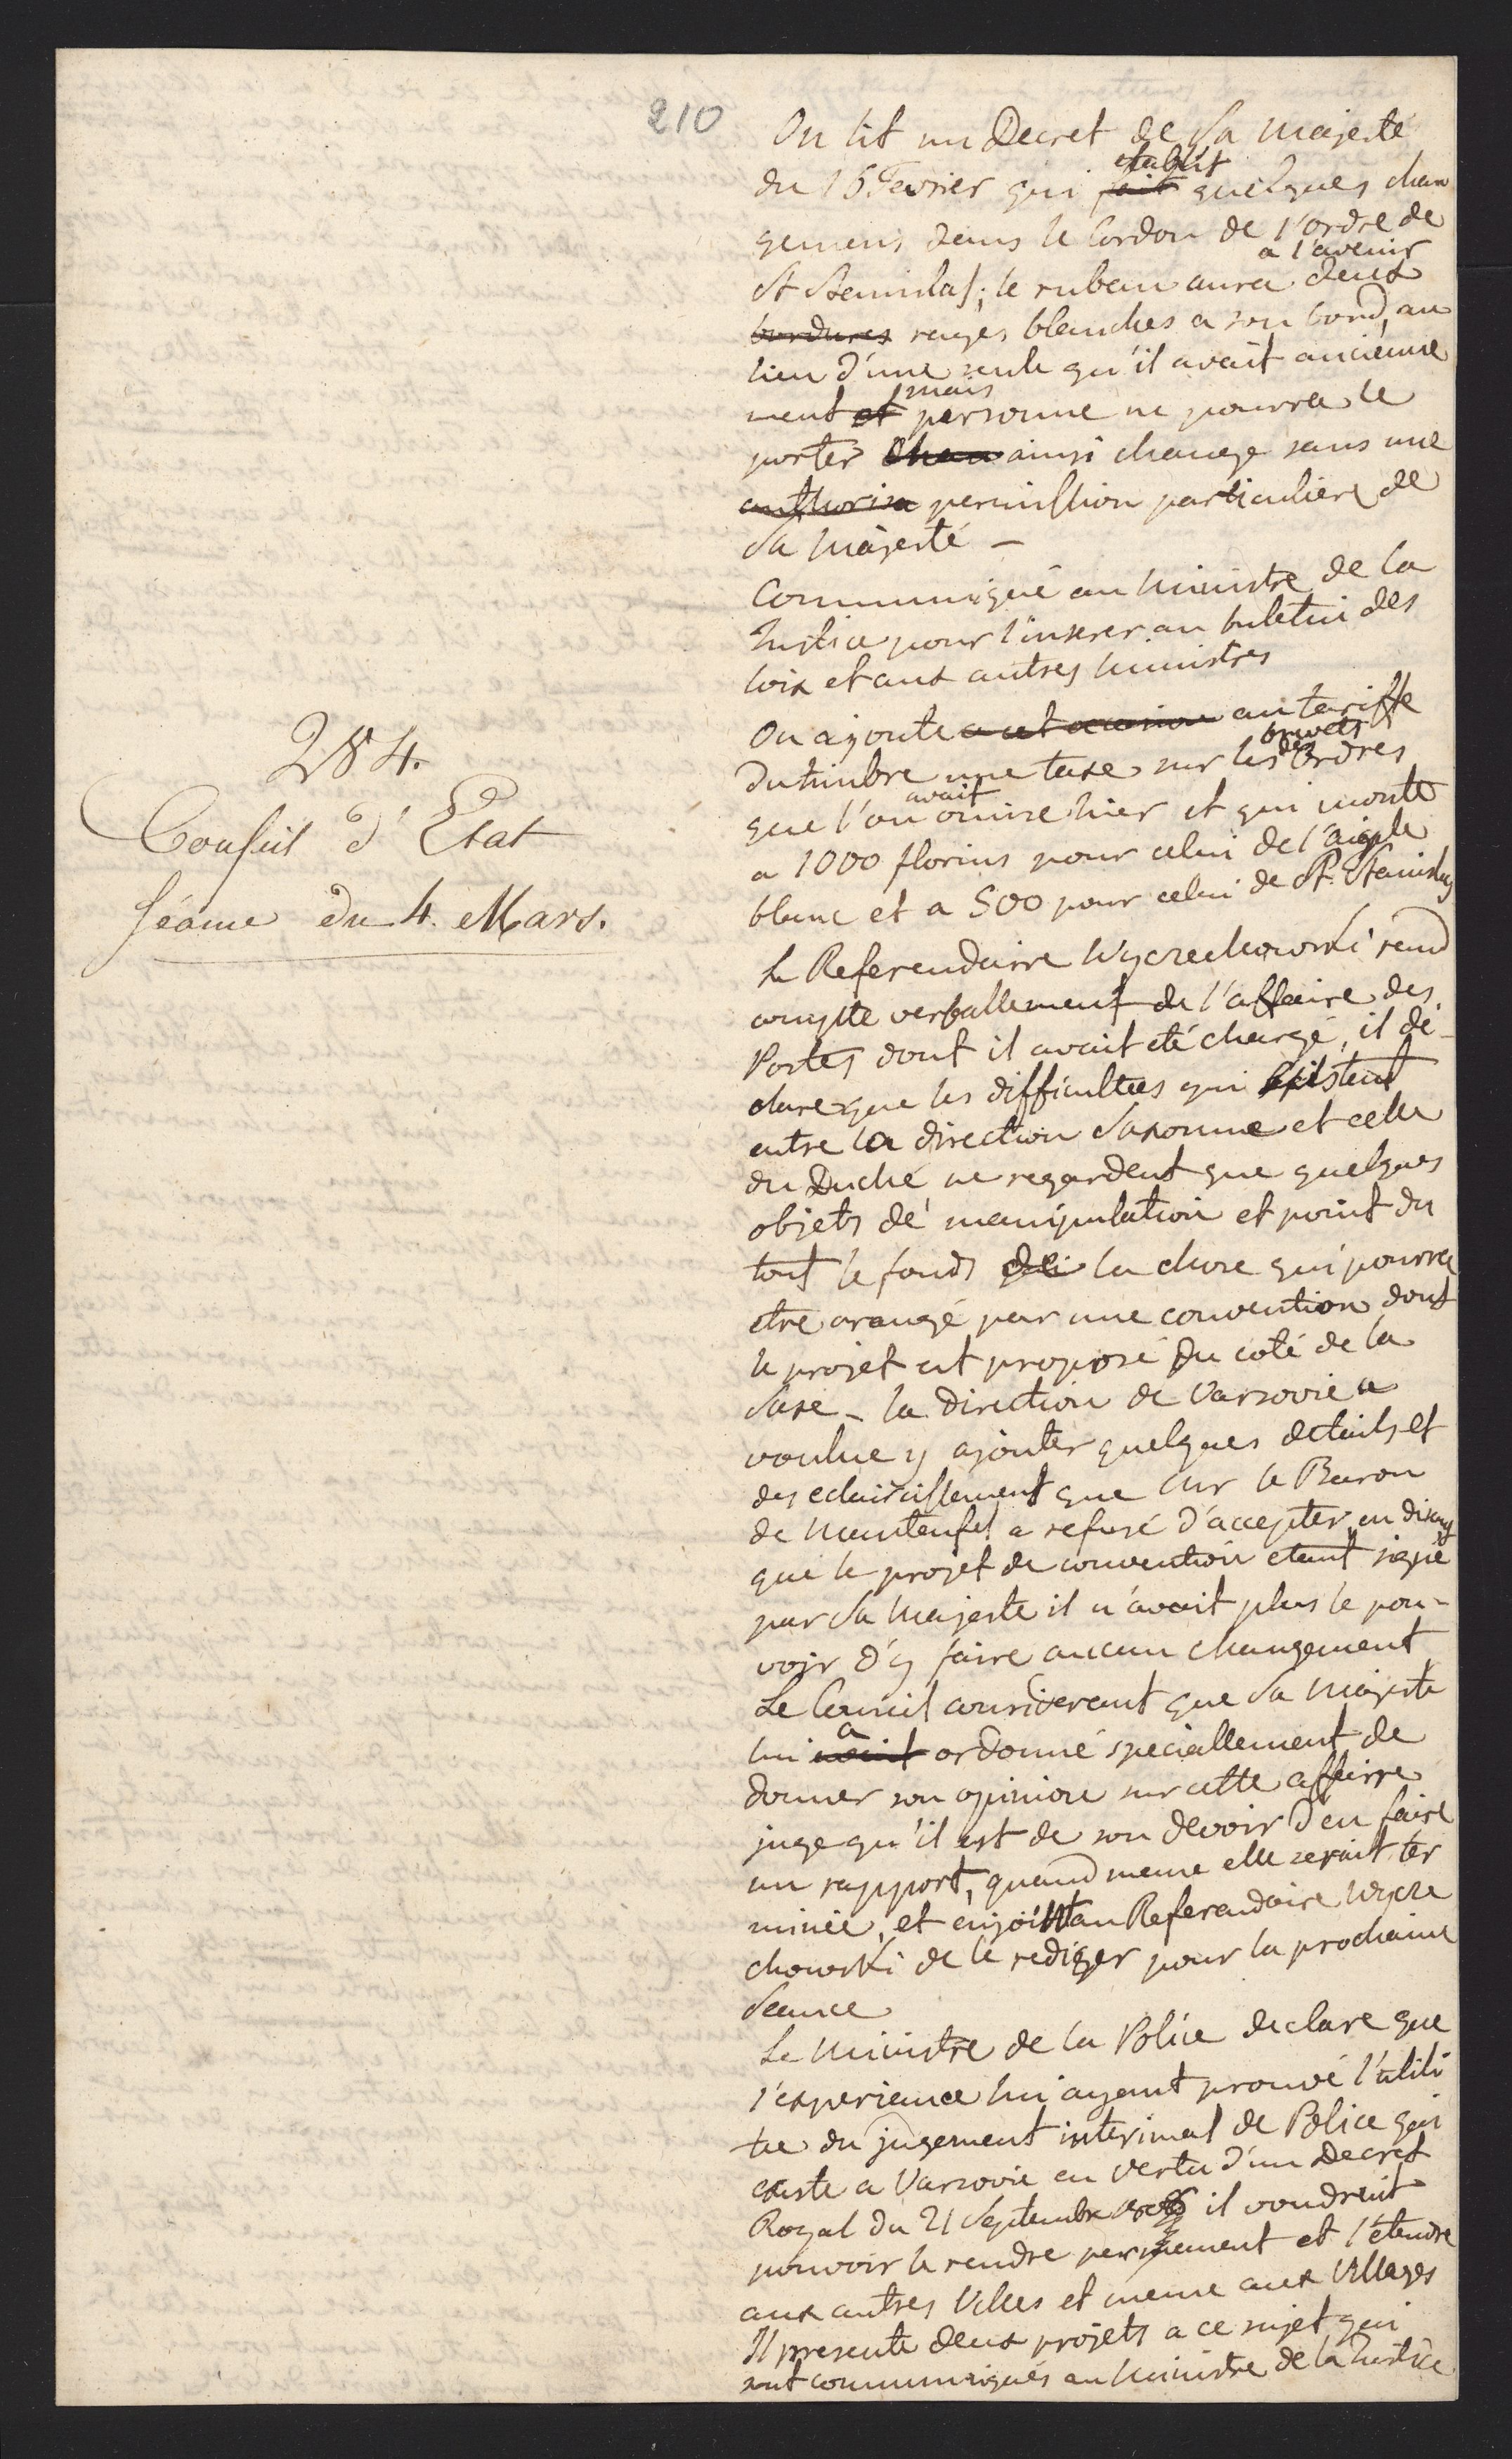 210
On lit un Decret de Sa Majesté
etablit
du 16 Fevrier qui fait quelques chan
gemens dans le Cordon de l'ordre de
a l'avenir
St Stanislas; le ruban aura deux
bordures rayes blanches a son bord, au
lieu d'une seule qu'il avait ancienne
mais
ment et personne ne pourra le
porter chan ainsi change sans une
authorisa permission particuliere de
Sa Majesté —
Communiqué au Ministre de la
Justice pour l'inserer au buletin des
loix et aux autres Ministres
On ajoute a cet occasion au tariffe
brevets
du timbre une taxe sur les des Ordres
avait
que l'on omise hier et qui monte
a 1000 florins pour celui de l'aigle
blanc et a 500 pour celui de St. Stanislas
284.
Conseil d'Etat
Séance du 4. Mars.
Le Referendaire Wyczechowski rend
compte verballement de l'affaire des
Postes dont il avait eté chargé, il dé-
clare que les difficultées qui existent
entre la direction Saxonne et celle
du Duché ne regardent que quelques
objets de manipulation et point du
tout le fonds de la chose qui pourra
etre arangé par une convention dont
le projet est proposé du coté de la
Saxe - la direction de Varsovie a
voulue y ajouter quelques details et
des eclaircissement que Mr le Baron
de Manteufel a refusé d'accepter en disant
que le projet de convention etant signé
par Sa Majesté il n'avait plus le pou-
voir d'y faire aucun changement
Le Conseil considerant que Sa Majesté
a
lui avait ordonné speciallement de
donner son opinion sur cette affaire
juge qu'il est de son devoir d'en faire
un rapport, quand meme elle serait ter
minée, et enjoint au Referendaire Wycze
chowski de le rediger pour la prochaine
Seance
Le Ministre de la Police declare que
l'experience lui ayant prouvé l'utili
tée du jugement interimal de Police qui
existe a Varsovie en vertu d'un Decret
Royal du 21 Septembre il voudrait
pouvoir le rendre permenent et l'étendre
aux autres Villes et meme aux Villages
Il presente deux projets a ce sujet qui
sont communiqués au Ministre de la Justice